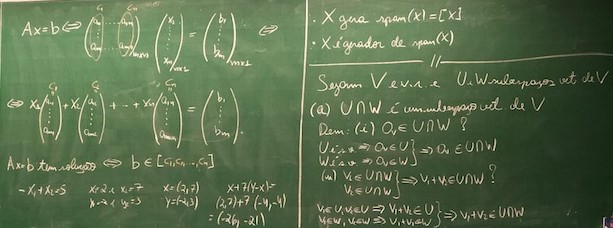 C₁ Cₙ
Ax=b ⇔ (a₁₁ ... a₁ₙ ⋮ aₘ₁ ... aₘₙ)ₘₓₙ (x₁ ⋮ xₘ)ₘₓ₁ = (b₁ ⋮ bₘ)ₘₓ₁ ⇔
C₁ C₂ Cₙ
⇔ x₁(a₁₁ ⋮ aₘ₁) + x₂(a₁₂ ⋮ aₘ₂) + ... + xₙ(a₁ₙ ⋮ aₘₙ) = (b₁ ⋮ bₘ).
Ax=b tem solução ⇔ b ∈ [C₁, C₂, ..., Cₙ]
-x₁+x₂=5 x₁=2 x₂=7 X=(2,7) X+7(Y-X)=
y₁=-2 y₂=3 Y=(-2,3) (2,7)+7(-4,-4)
=(-26,-21)
· X gera span(X)=[X]
· X é gerador de span(X)
//
Sejam V e.v. e U,W subespaços vet. de V
(a) U∩W é um subespaço vet. de V
Dem: (i) 0ᵥ∈U∩W ?
U é s.v ⇒ 0ᵥ∈U } ⇒ 0ᵥ∈U∩W
W é s.v ⇒ 0ᵥ∈W
(ii) V₁∈U∩W } ⇒ V₁+V₂∈U∩W ?
V₂∈U∩W
V₁∈U, V₂∈U ⇒ V₁+V₂∈U } ⇒ V₁+V₂∈U∩W
V₁∈W, V₂∈W ⇒ V₁+V₂∈W